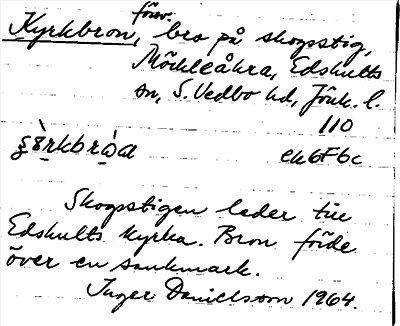 försv.
Kyrkbron, bro på skogsstig,
Möckleåkra, Edshults
sn, S. Vedbo hd, Jönk. l.
110
ek6F6c
Skogsstigen leder till
Edshults kyrka. Bron förde
över en sankmark.
Inger Danielsson 1964.